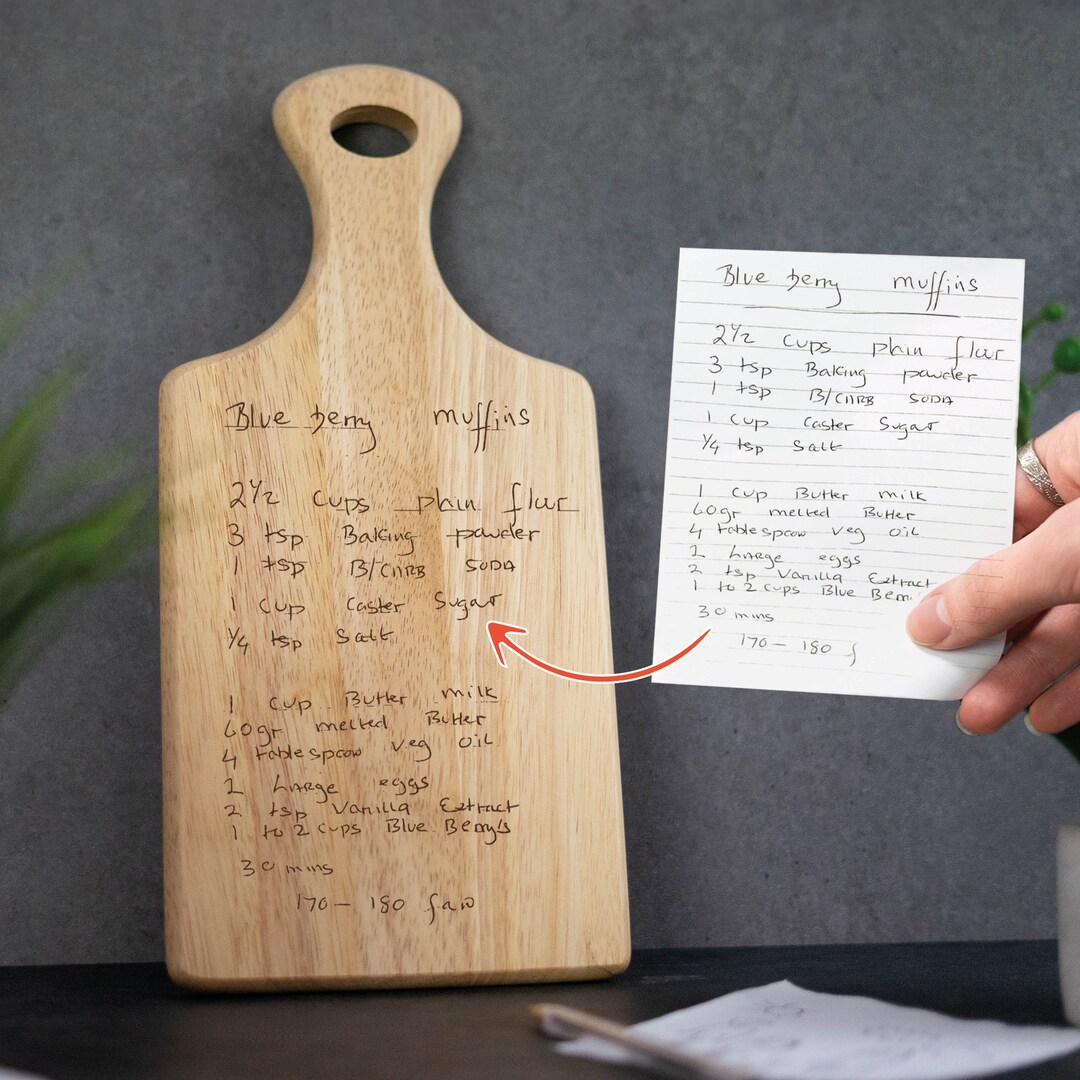 Blue berry muffins
2 1/2 cups plain flour
3 tsp Baking powder
1 tsp B/CARB SODA
1 cup caster Sugar
1/4 tsp Salt
1 cup Butter milk
60gr melted Butter
4 tablespoon veg oil
2 Large eggs
2 tsp Vanilla Extract
1 to 2 cups Blue Berry's
30 mins
170 - 180 fan
Blue berry muffins
2 1/2 cups plain flour
3 tsp Baking powder
1 tsp B/CARB SODA
1 cup caster Sugar
1/4 tsp Salt
1 cup Butter milk
60gr melted Butter
4 tablespoon veg oil
2 Large eggs
2 tsp Vanilla Extract
1 to 2 cups Blue Berry
30 mins
170 - 180 f